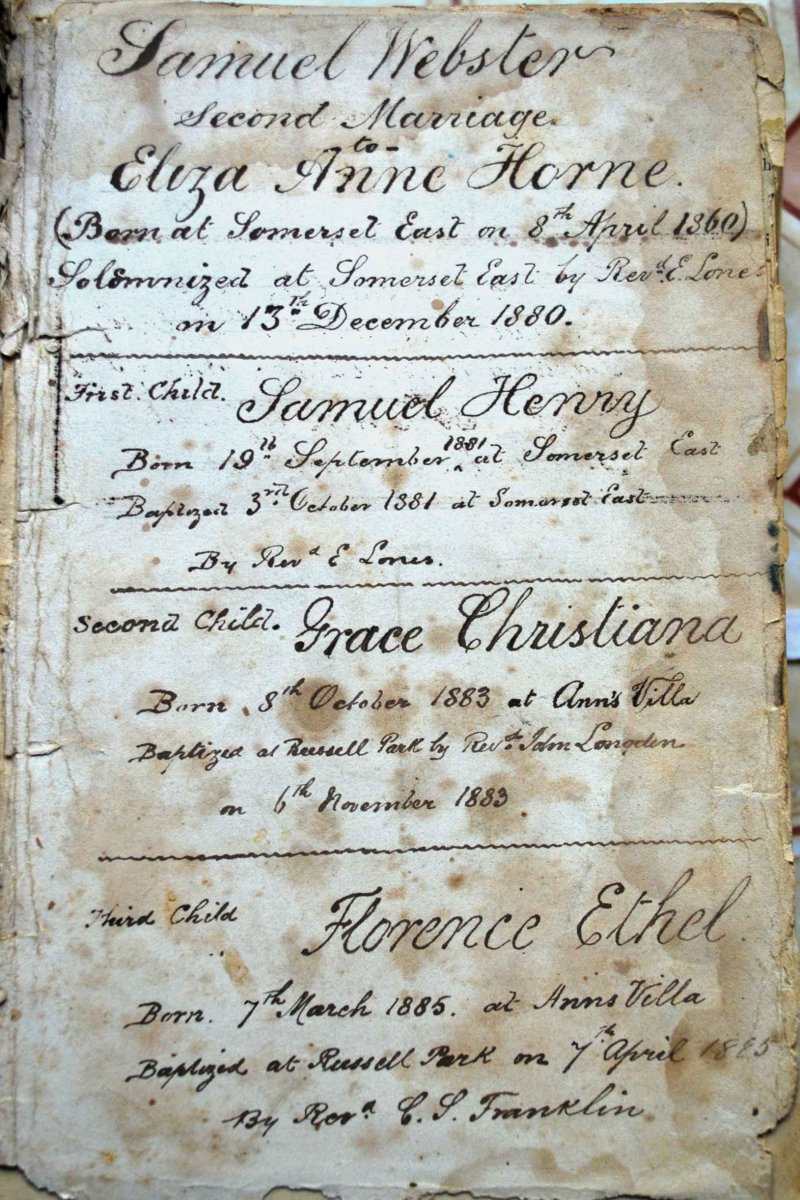 Samuel Webster
Second Marriage
to
Eliza Anne Horne.
(Born at Somerset East on 8th April 1860)
Solemnized at Somerset East by Revd. E. Lones
on 13th December 1880.
First Child. Samuel Henry
Born 19th September 1881 at Somerset East
Baptized 3rd October 1881 at Somerset East
By Revd E Lones.
Second Child. Grace Christiana
Born 8th October 1883 at Ann's Villa
Baptized at Russell Park by Revd. John Longden
on 6th November 1883
Third Child Florence Ethel.
Born. 7th March 1885. at Anns Villa
Baptized at Russell Park on 7th April 1885
By Revd C. S. Franklin